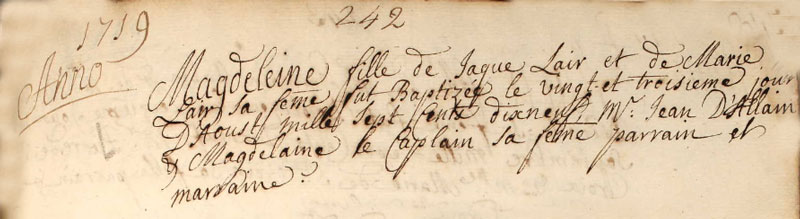 242
1719
Anno
Magdeleine fille de Jaque Lair et de Marie
Lair sa feme fut Baptizée le vingt et troisieme jour
D'Aoust mille sept sents dixneuf, Mr. Jean D'Allain
& Magdelaine le Caplain sa feme parrain et
marraine.